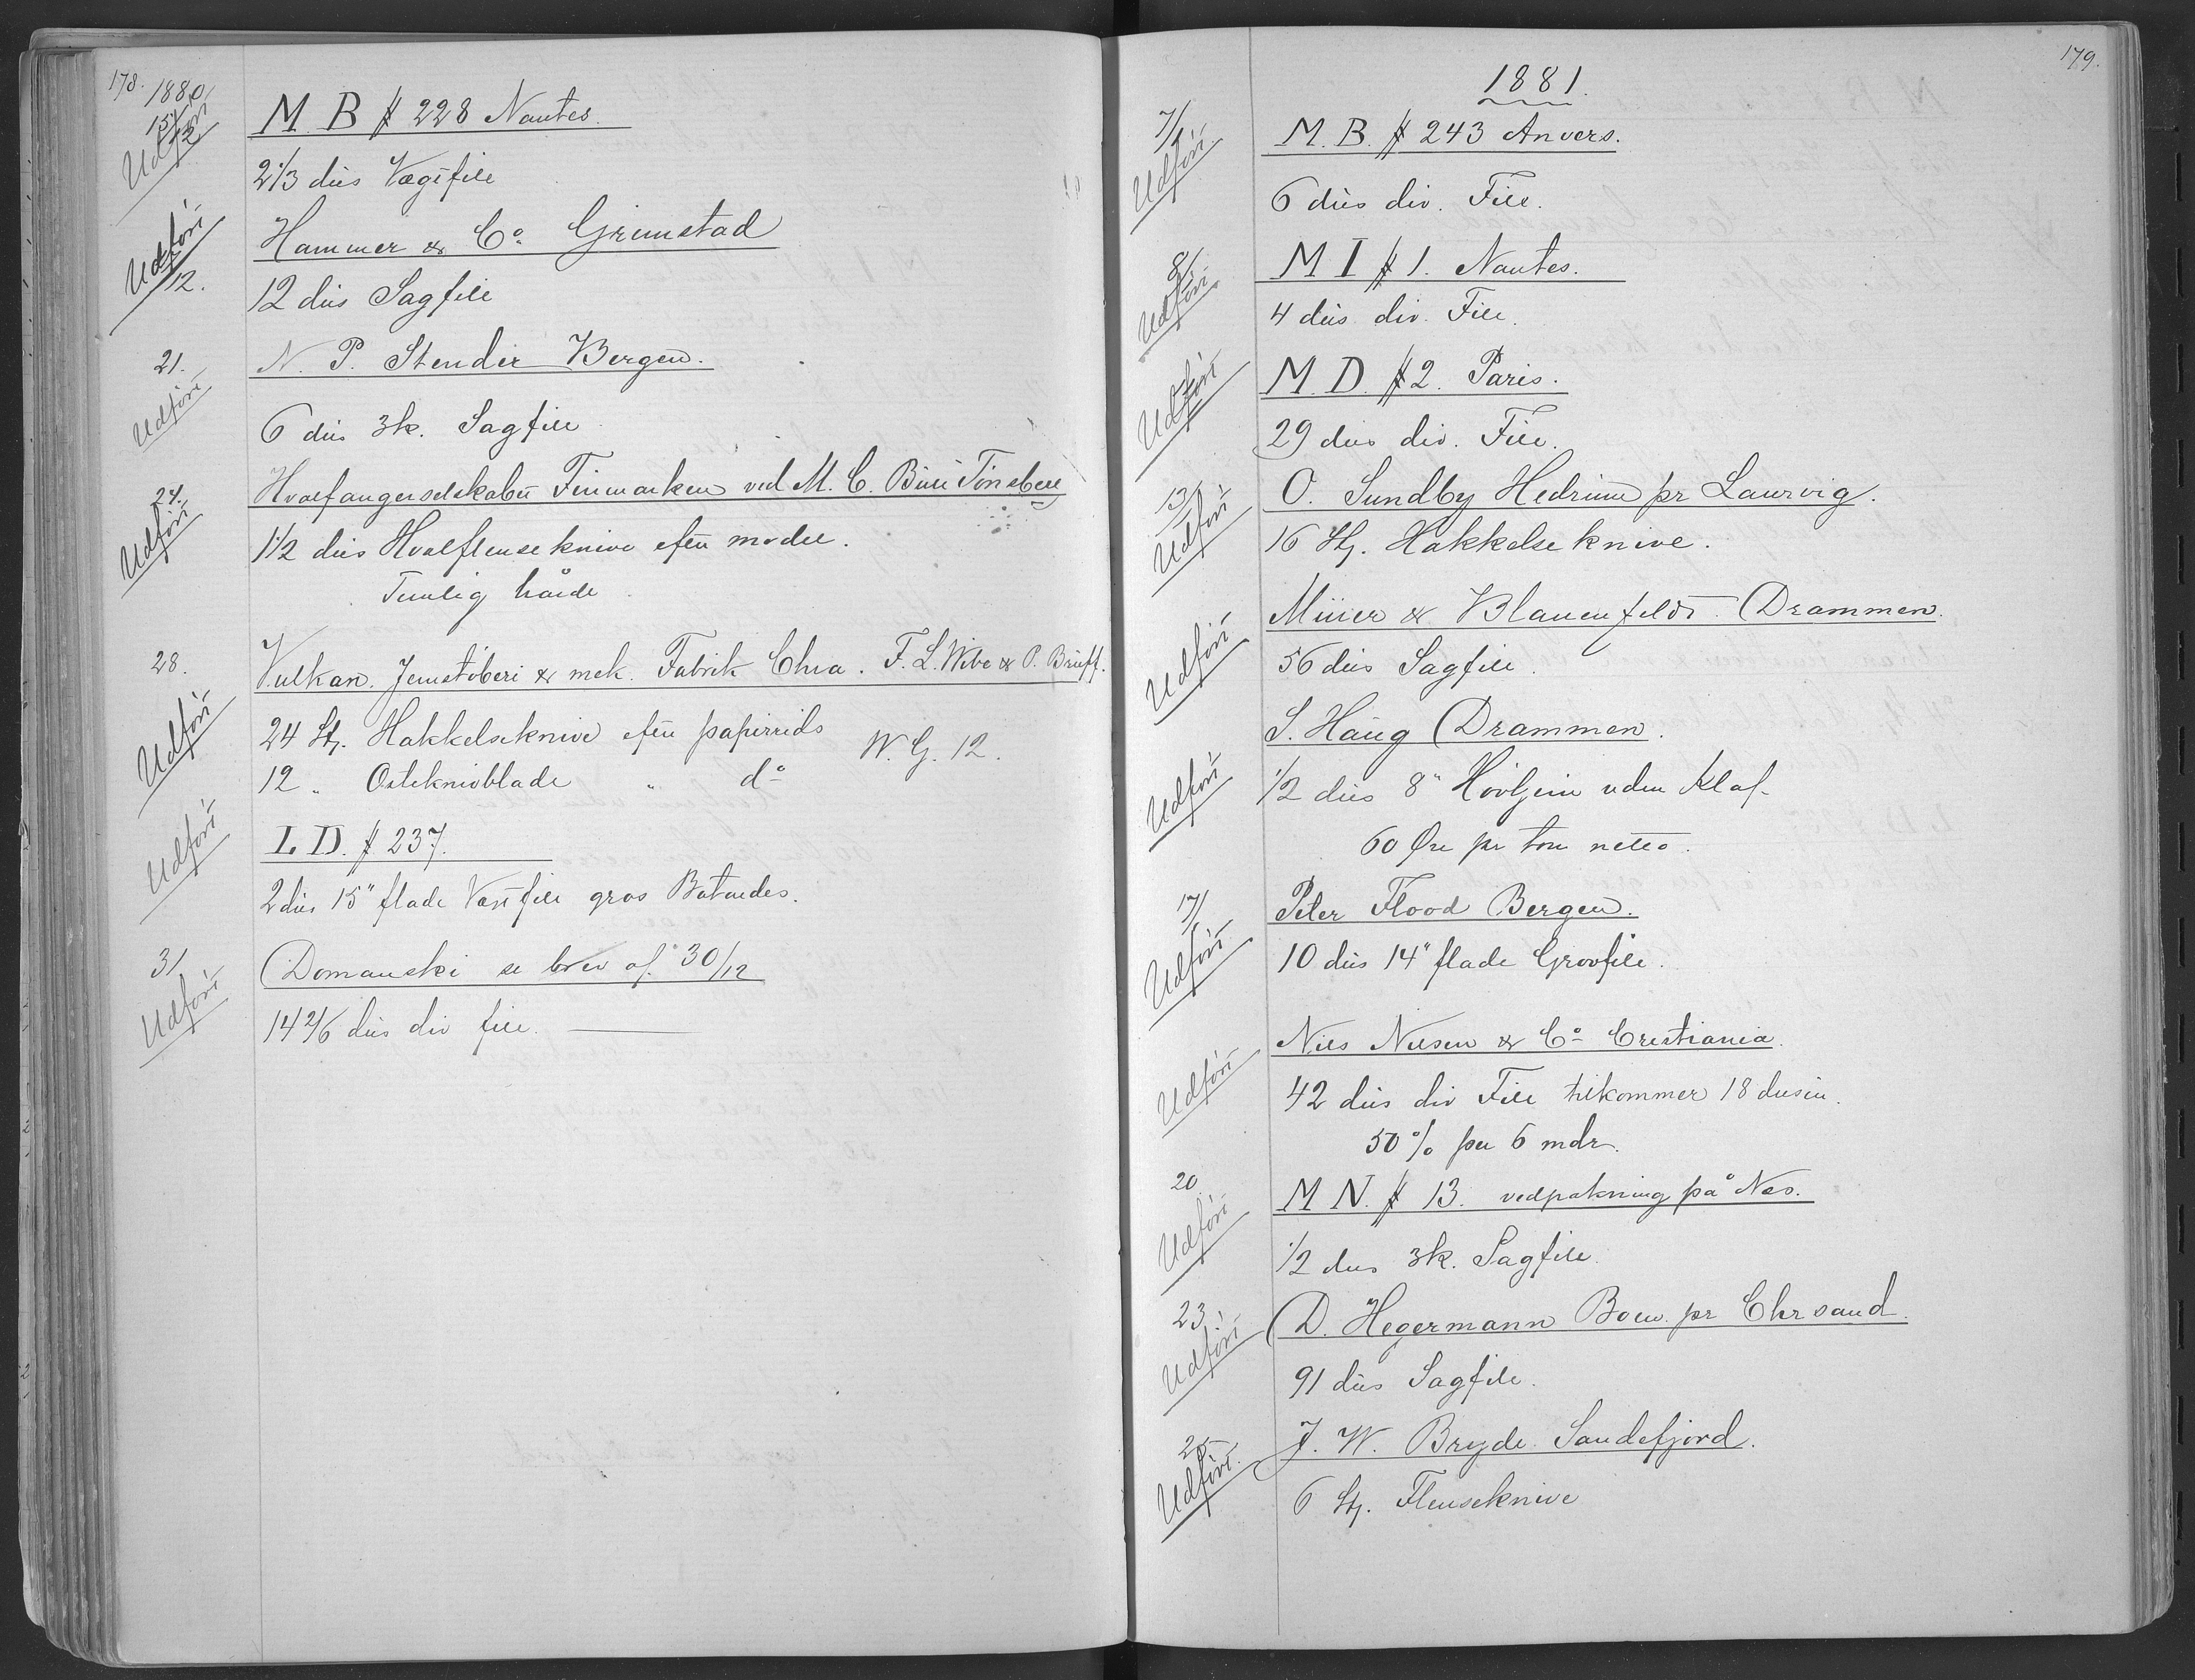 178.
1880
15/12
Udført
M. B # 228 Nantes.
2 1/3 dus Vægtfile
Udført
12.
Hammer & Co. Grimstad
12 dus Sagfile
21.
Udført
N. P. Stender Bergen.
6 dus 3k. Sagfile
24.
Udført
Hvalfangerselskabet Finmarken ved M. C. Bull Tønsberg
1 1/2 dus Hvalflenseknive efter model.
Temlig hårde
28.
Vulkan. Jernstöberi & mek. Fabrik Chra. F. L. Wibe & P. Brüff.
Udført
24 St. Hakkelseknive efter papirrids W. G. 12.
12 " Osteknivblade " do
Udført
L D. # 237.
2 dus 15" flade Vassfile gros Batardes.
31
Udført
Domanski se brev af 30/12
14 2/6 dus div file.
179.
1881.
7/1
Udført
M. B. # 243 Anvers.
6 dus div. File.
8/1
Udført
M I # 1. Nantes.
4 dus div. File.
Udført
M. D. # 2. Paris.
29 dus div. File.
13/1
Udført
O. Sundby Hedrum pr Laurvig.
16 St. Hakkelseknive.
Udført
Müller & Blauenfeldt Drammen.
56 dus Sagfile
Udført
S. Haug Drammen.
1/2 dus 8" Hövljern uden Klaf
60 Øre pr tom netto.
17/1
Udført
Peter Flood Bergen.
10 dus 14" flade Grovfile.
Udført
Nils Nilsen & Co Cristiania.
42 dus div File tilkommer 18 dusin.
50% per 6 mdr.
20
Udført
M N. # 13. vedpakning på Nes.
1/2 dus 3k. Sagfile.
23
Udført
D. Hegermann Boen pr Chrsand.
91 dus Sagfile.
25
Udført.
J. W. Bryde Sandefjord.
6 St. Flenseknive